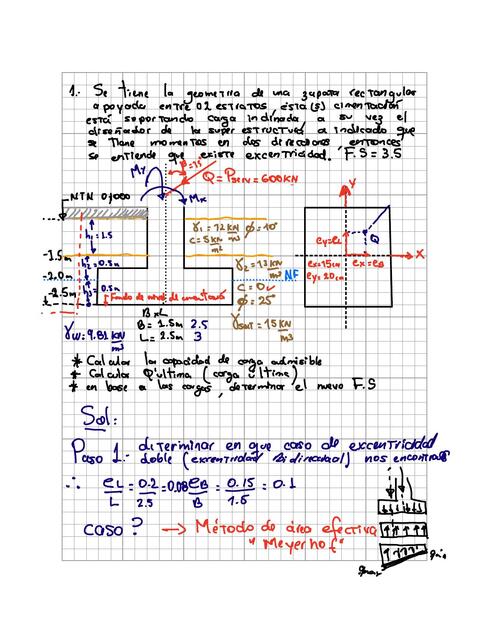 1.- Se tiene la geometria de una zapata rectangular
apoyada entre 02 estratos, esta(s) cimentación
está soportando carga inclinada, a su vez el
diseñador de la super estructura a indicado que
se tiene momentos en dos direcciones entonces
se entiende que existe excentricidad. F.S = 3.5
My
β=15
Q = Pserv = 600KN
Mx
NTN 0,+000
h1 = 1.5
γ1 = 12 KN/m³ φ = 10°
c = 5 KN/m²
-1.5m
h2 = 0.5m
γ2 = 13 KN/m³
NF
-2.0m
c = 0
φ = 25°
0.5m
-2.5m
Fondo de nivel de cimentación
γsat = 15 KN/m³
γw = 9.81 KN/m³
B x L
B = 1.5m 2.5
L = 2.5m 3
Y
ey = eL
Q
X
ex = 15cm
ex = eB
ey = 20cm
* Calcular la capacidad de carga admisible
* Calcular Qultima (carga ultima)
* en base a las cargas, determinar el nuevo F.S
Sol:
Paso 1.- determinar en que caso de excentricidad
doble (excentricidad Bidireccional) nos encontramos
∴ eL/L = 0.2/2.5 = 0.08 eB/B = 0.15/1.5 = 0.1
caso? → Método de área efectiva
"Meyerhof"
qmax
qmin